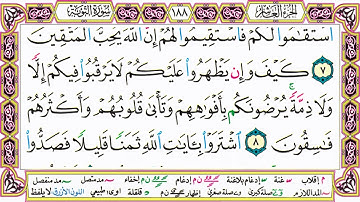 الجزء العاشر ١٨٨ سورة التوبة
ٱسْتَقَٰمُوا۟ لَكُمْ فَٱسْتَقِيمُوا۟ لَهُمْ إِنَّ ٱللَّهَ يُحِبُّ ٱلْمُتَّقِينَ
٧ كَيْفَ وَإِن يَظْهَرُوا۟ عَلَيْكُمْ لَا يَرْقُبُوا۟ فِيكُمْ إِلًّا
وَلَا ذِمَّةً يُرْضُونَكُم بِأَفْوَٰهِهِمْ وَتَأْبَىٰ قُلُوبُهُمْ وَأَكْثَرُهُمْ
فَٰسِقُونَ ٨ ٱشْتَرَوْا۟ بِـَٔايَٰتِ ٱللَّهِ ثَمَنًا قَلِيلًا فَصَدُّوا۟